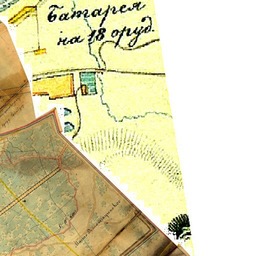 Батарея
на 18 оруд.